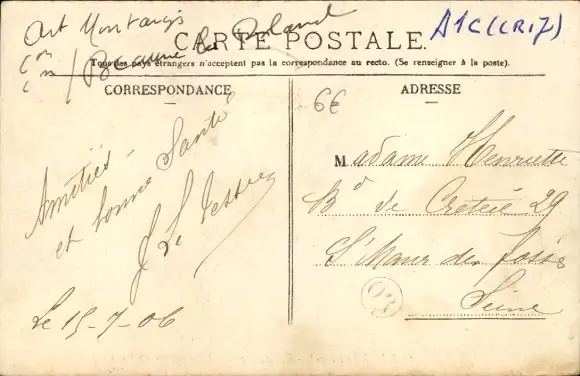 Art Montargis
A1C(CR17)
Con
Cm / Beaune la Roland
CARTE POSTALE.
Tous des pays étrangers n'acceptent pas la correspondance au recto. (Se renseigner à la poste).
CORRESPONDANCE
Amitiés -
et bonne Santé
J Le
Le 15-7-06
6€
ADRESSE
Madame Henriette
Bd de Créteil 29
St Maur des Fossés
Seine